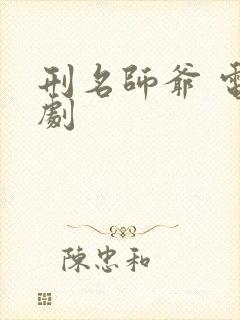 刑名師爺 電
劇
陳忠和